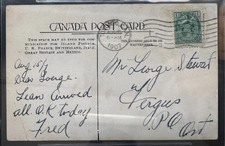 CANADA POST CARD
THIS SPACE MAY BE USED FOR COM-
MUNICATION FOR INLAND POSTAGE,
U. S. FRANCE, SWITZERLAND, ITALY,
GREAT BRITAIN AND MEXICO.
1907
Aug 15/7
Dear George
Leon arrived
all O.K today
Fred
Mr George Stewart
Fergus
P.O
Ont